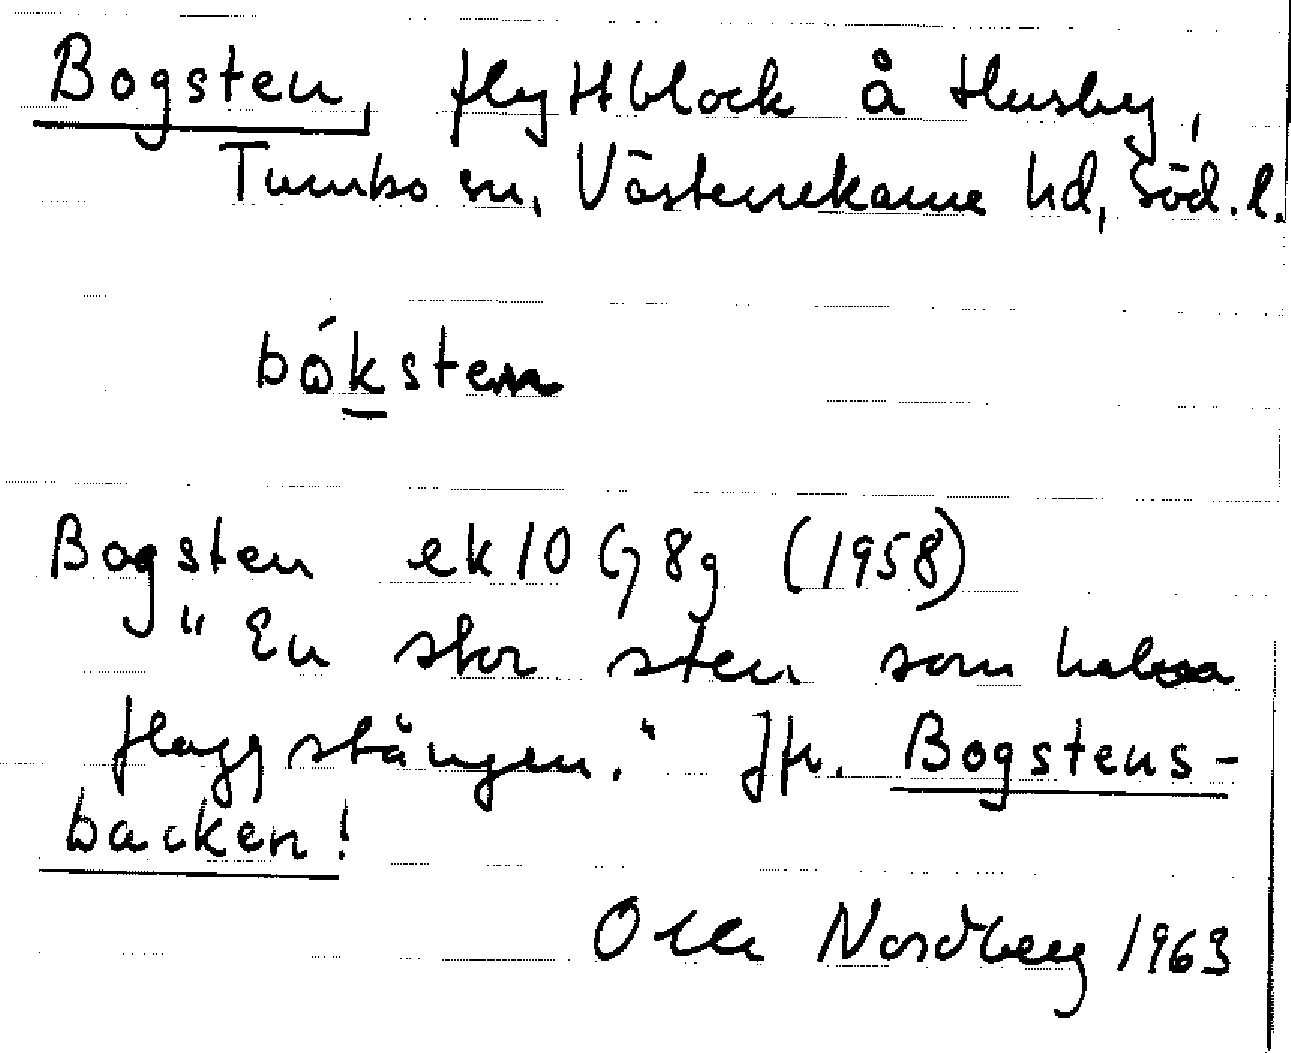 Bogsten, flyttblock å Husby,
Tumbo sn, Västerrekarne hd, Söd. l.
bóksten
Bogsten ek 10 G 8 g (1958)
"En stor sten som
flaggstången." Jfr. Bogstens-
backen!
Olle Nordberg 1963